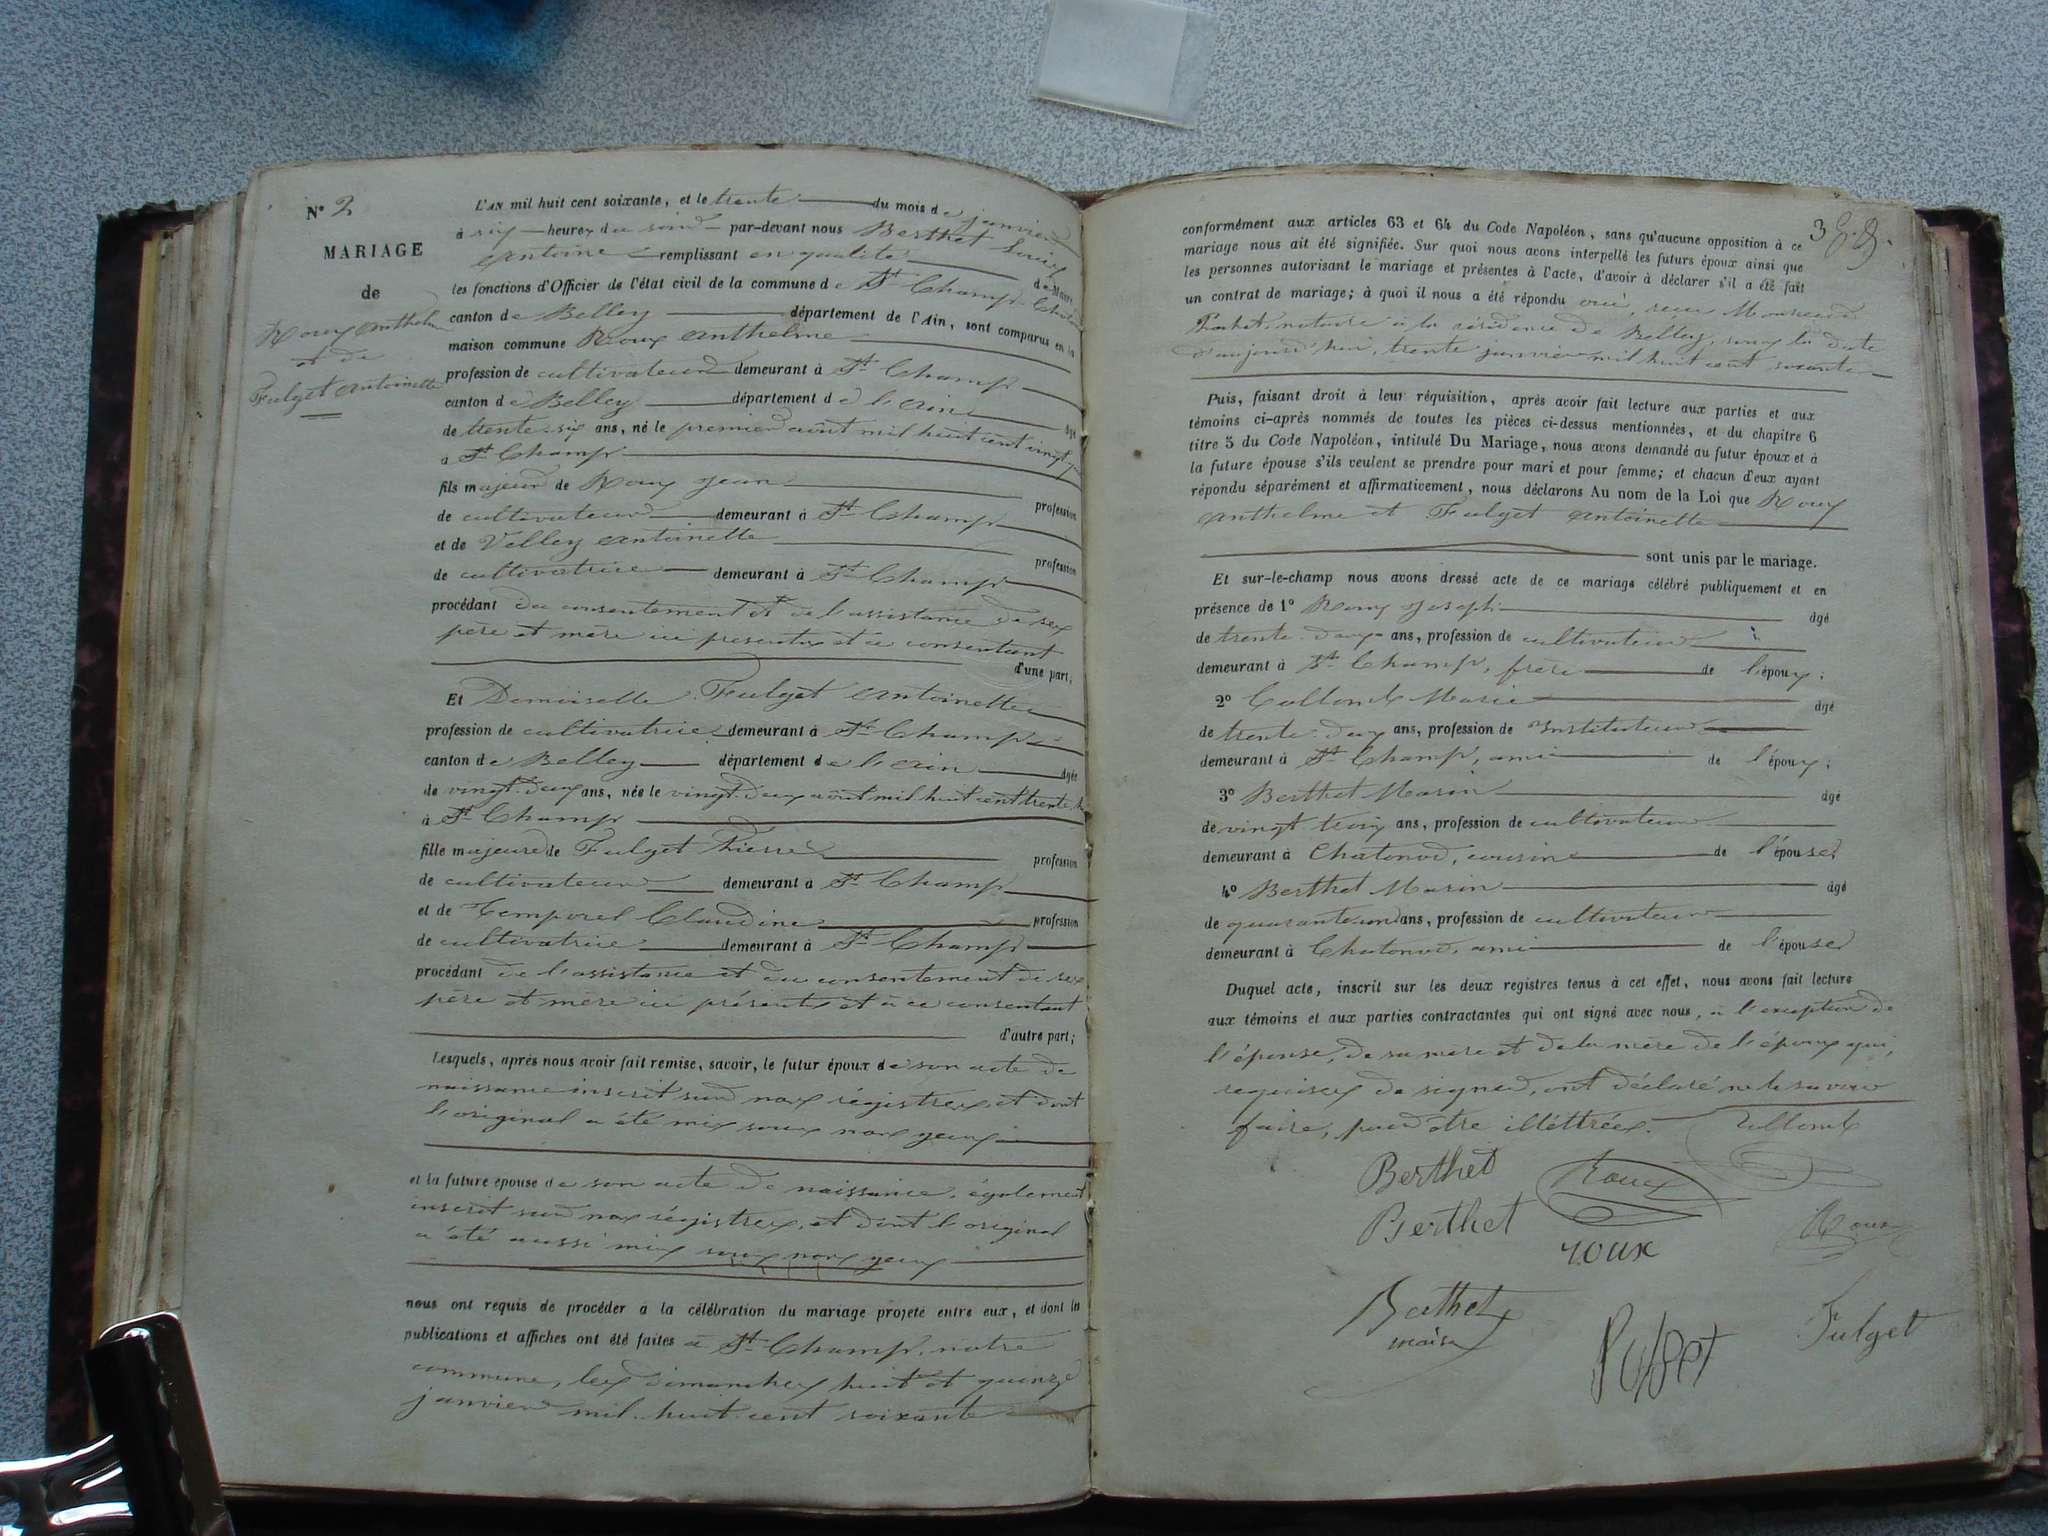 N° 2
MARIAGE
de
Roux Anthelme
et de
Fulget Antoinette
L'AN mil huit cent soixante, et le trente du mois de janvier
à six heures du soir par-devant nous Berthet Louis
Antoine remplissant en qualité de Maire
les fonctions d'Officier de l'état civil de la commune de St Champ-Chatonod
canton de Belley département de l'Ain, sont comparus en la
maison commune Roux Anthelme
profession de cultivateur demeurant à St Champ
canton de Belley département de l'Ain âgé
de trente-six ans, né le premier août mil huit cent vingt
à St Champ
fils majeur de Roux Jean profession
de cultivateur demeurant à St Champ
et de Velley Antoinette profession
de cultivatrice demeurant à St Champ
procédant du consentement et de l'assistance de ses
père et mère ici présents et à ce consentant
d'une part;
Et Demoiselle Fulget Antoinette
profession de cultivatrice demeurant à St Champ
canton de Belley département de l'Ain âgée
de vingt-deux ans, née le vingt-deux août mil huit cent trente
à St Champ
fille majeure de Fulget Pierre profession
de cultivateur demeurant à St Champ
et de Temporel Claudine profession
de cultivatrice demeurant à St Champ
procédant de l'assistance et du consentement de ses
père et mère ici présents et à ce consentant
d'autre part;
Lesquels, après nous avoir fait remise, savoir, le futur époux de son acte de
naissance inscrit sur nos régistres, et dont
l'original a été mis sous nos yeux
et la future épouse de son acte de naissance, également
inscrit sur nos régistres, et dont l'original
a été aussi mis sous nos yeux
nous ont requis de procéder à la célébration du mariage projeté entre eux, et dont les
publications et affiches ont été faites à St Champ, notre
commune, les dimanches huit et quinze
janvier mil-huit-cent soixante
3
conformément aux articles 63 et 64 du Code Napoléon, sans qu'aucune opposition à ce
mariage nous ait été signifiée. Sur quoi nous avons interpellé les futurs époux ainsi que
les personnes autorisant le mariage et présentes à l'acte, d'avoir à déclarer s'il a été fait
un contrat de mariage; à quoi il nous a été répondu oui, reçu Monsieur
notaire à la résidence de Belley, sous la date
d'aujourd'hui, trente janvier mil huit cent soixante
Puis, faisant droit à leur réquisition, après avoir fait lecture aux parties et aux
témoins ci-après nommés de toutes les pièces ci-dessus mentionnées, et du chapitre 6
titre 5 du Code Napoléon, intitulé Du Mariage, nous avons demandé au futur époux et à
la future épouse s'ils veulent se prendre pour mari et pour femme; et chacun d'eux ayant
répondu séparément et affirmativement, nous déclarons Au nom de la Loi que Roux
Anthelme et Fulget Antoinette
sont unis par le mariage.
Et sur-le-champ nous avons dressé acte de ce mariage célébré publiquement et en
présence de 1° Roux Joseph âgé
de trente-deux ans, profession de cultivateur
demeurant à St Champ, frère de l'époux;
2° Collomb Marie âgé
de trente-deux ans, profession de Instituteur
demeurant à St Champ, ami de l'époux;
3° Berthet Marin âgé
de vingt-trois ans, profession de cultivateur
demeurant à Chatonod, cousin de l'épouse;
4° Berthet Marin âgé
de quarante-un ans, profession de cultivateur
demeurant à Chatonod, ami de l'épouse
Duquel acte, inscrit sur les deux registres tenus à cet effet, nous avons fait lecture
aux témoins et aux parties contractantes qui ont signé avec nous, à l'exception de
l'épouse, de sa mère et de la mère de l'époux qui,
requises de signer, ont déclaré ne le savoir
faire, pour être illéttrées. Collomb
Berthet Roux
Berthet roux Roux
Berthet
maire
Fulget Fulget